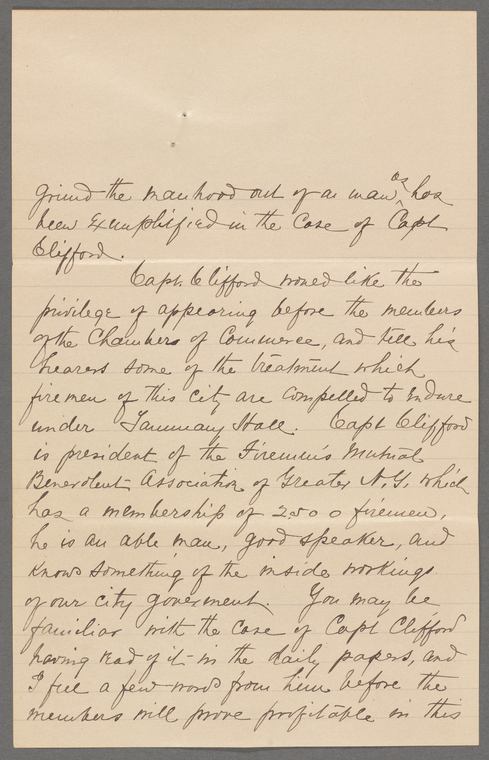 grind the manhood out of a man, as has
been Exmplified in the Case of Capt
Clifford.
Capt. Clifford woued like the
privilege of appearing before the members
of the Chambers of Commerce, and tell his
hearers some of the treatment which
firemen of this city are compelled to Endure
under Tammany Hall. Capt Clifford
is president of the Firemen's Mutual
Benevolent Association of Greater N.Y. which
has a membership of 2500 firemen,
he is an able man, good speaker, and
Knows something of the inside workings
of our city goverment. You may be
familiar with the case of Capt Clifford
having read of it in the daily papers, and
I feel a few words from him before the
members will prove profitable in this